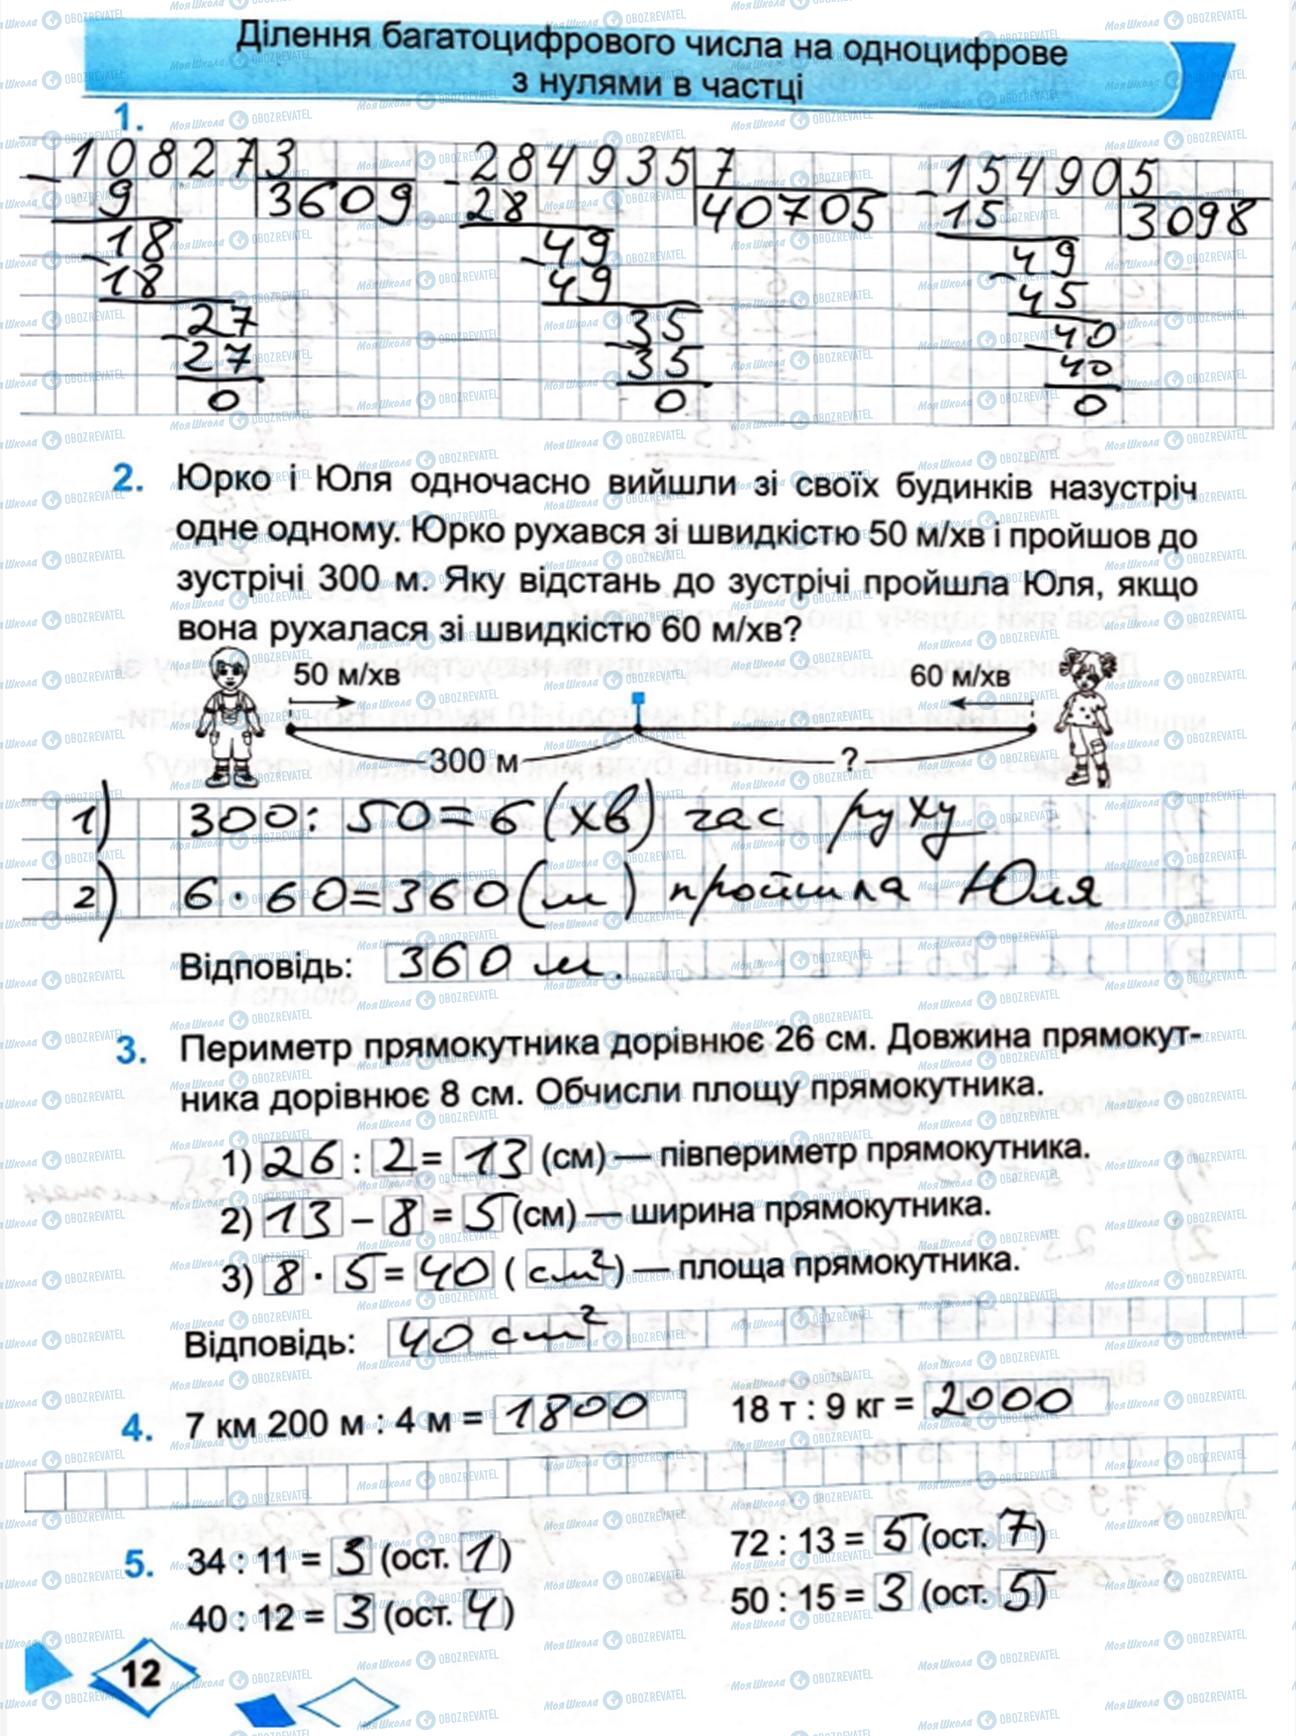 Ділення багатоцифрового числа на одноцифрове
з нулями в частці
1.
10827 3 284935 7 15490 5
9 3609 28 40705 15 3098
18 49 49
18 49 45
27 35 40
27 35 40
0 0 0
2. Юрко і Юля одночасно вийшли зі своїх будинків назустріч
одне одному. Юрко рухався зі швидкістю 50 м/хв і пройшов до
зустрічі 300 м. Яку відстань до зустрічі пройшла Юля, якщо
вона рухалася зі швидкістю 60 м/хв?
50 м/хв 60 м/хв
300 м ?
1) 300 : 50 = 6 (хв) час руху
2) 6 · 60 = 360 (м) пройшла Юля
Відповідь: 360 м.
3. Периметр прямокутника дорівнює 26 см. Довжина прямокут-
ника дорівнює 8 см. Обчисли площу прямокутника.
1) 26 : 2 = 13 (см) — півпериметр прямокутника.
2) 13 – 8 = 5 (см) — ширина прямокутника.
3) 8 · 5 = 40 (см²) — площа прямокутника.
Відповідь: 40 см²
4. 7 км 200 м : 4 м = 1800 18 т : 9 кг = 2000
5. 34 : 11 = 3 (ост. 1) 72 : 13 = 5 (ост. 7)
40 : 12 = 3 (ост. 4) 50 : 15 = 3 (ост. 5)
12
МояШкола OBOZREVATEL